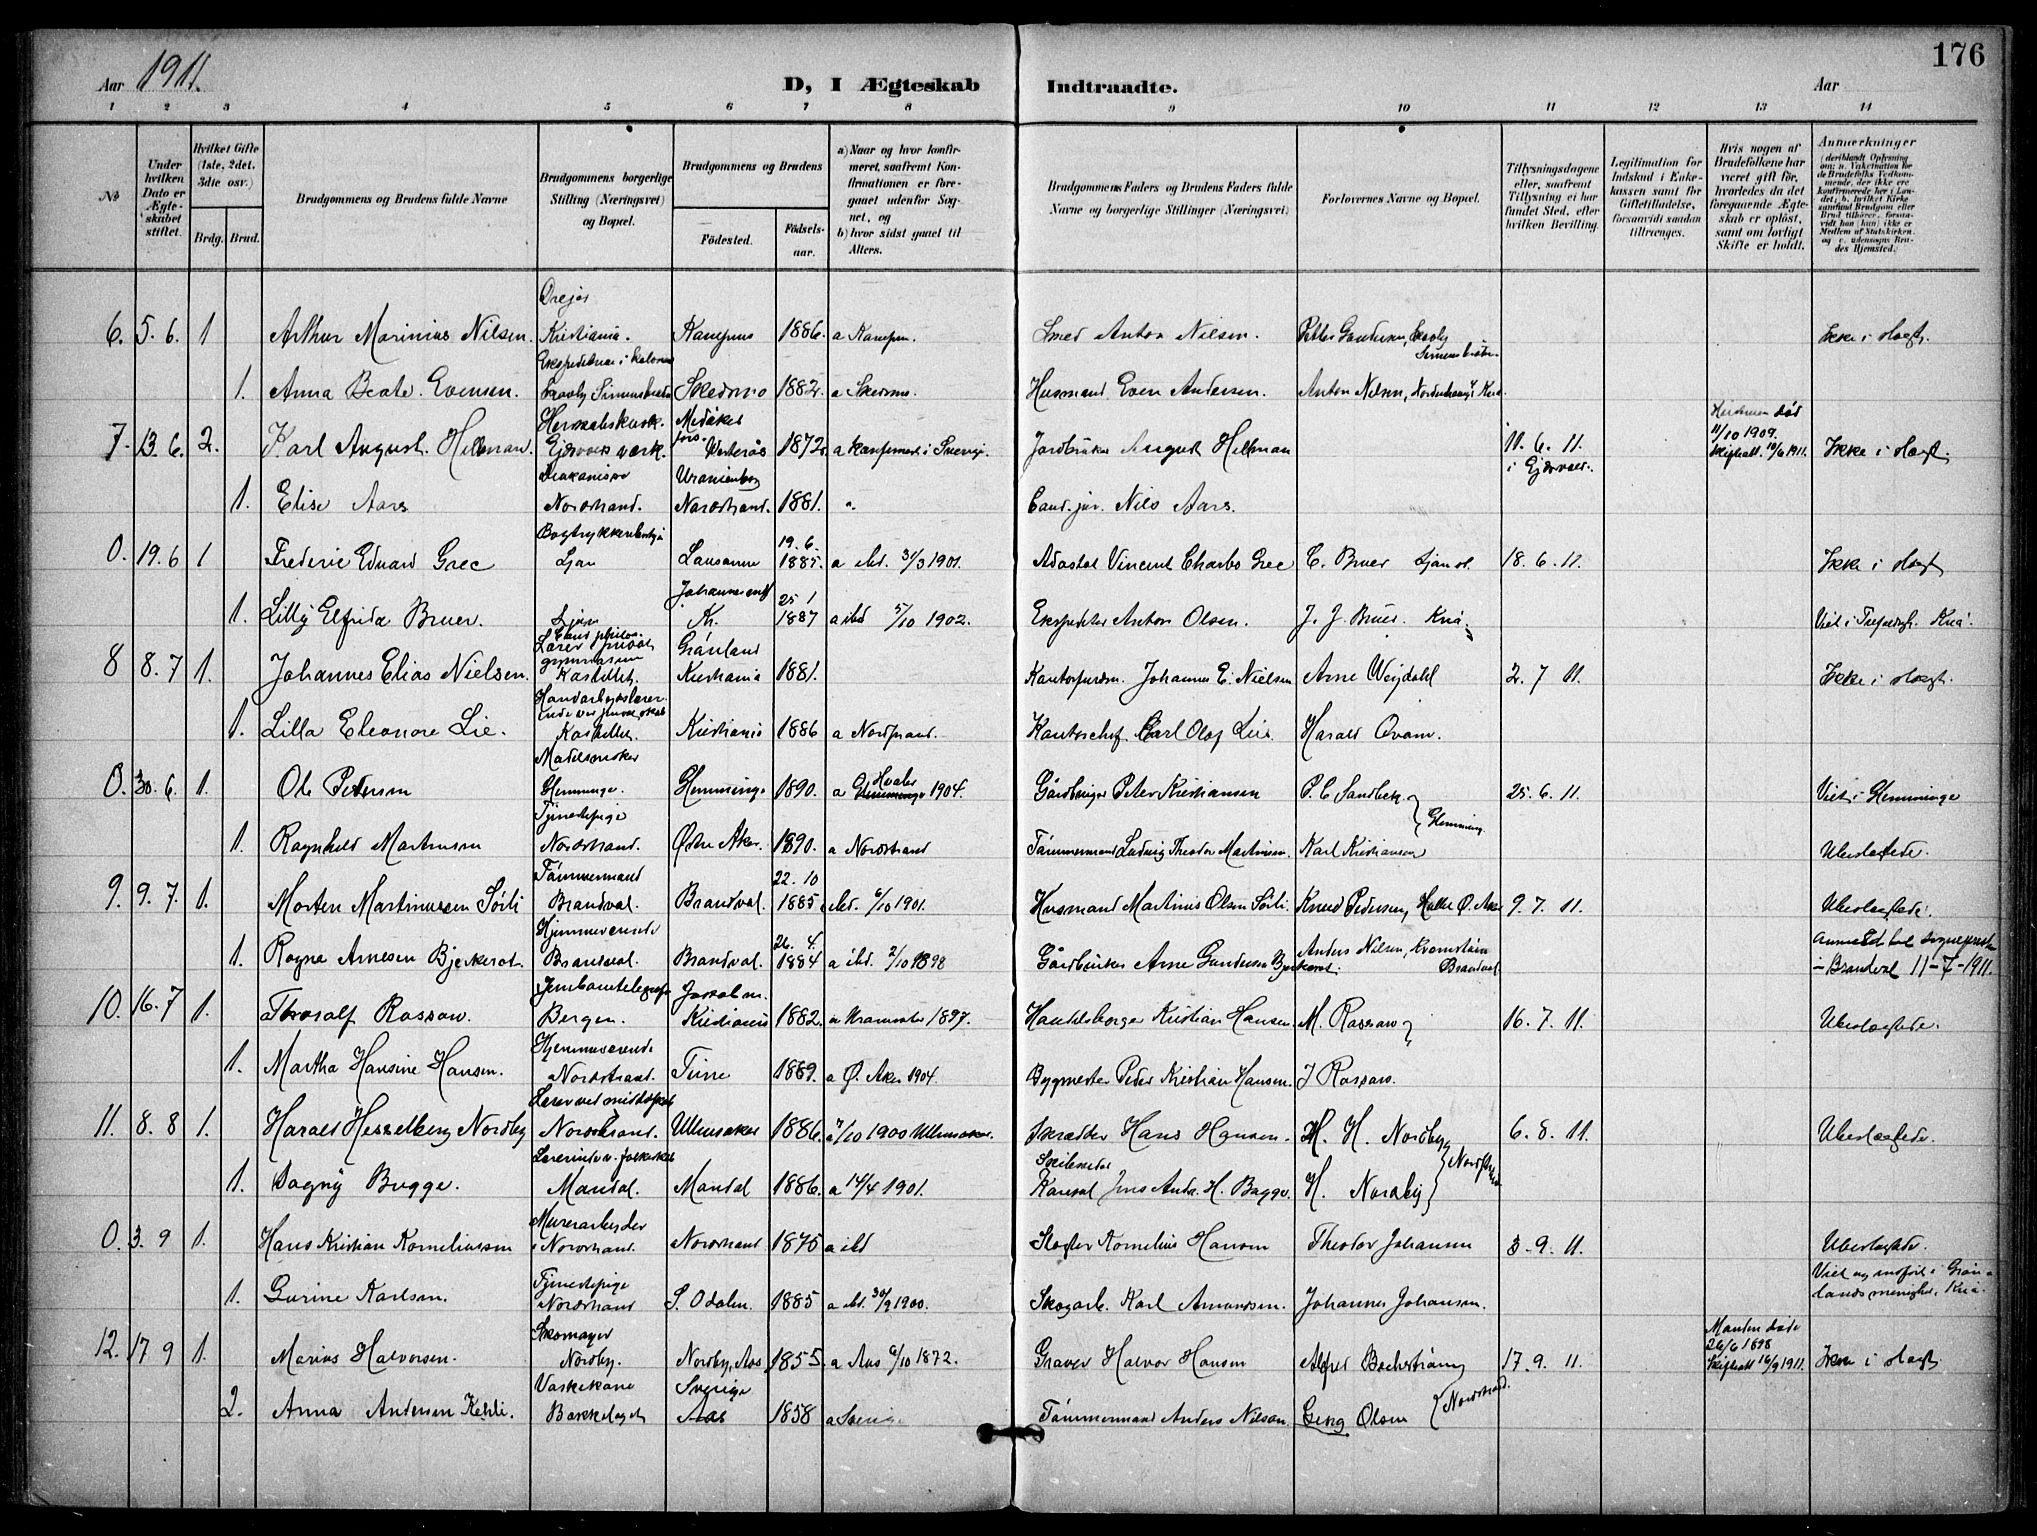 176
Aar 1911.
D, I Ægteskab Indtraadte.
Aar
1 2 3 4 5 6 7 8 9 10 11 12 13 14
No
Under hvilken Dato er Ægteskabet stiftet.
Hvilket Gifte (1ste, 2det, 3die osv.)
Brdg. Brud.
Brudgommens og Brudens fulde Navne
Brudgommens borgerlige Stilling (Næringsvei) og Bopæl.
Brudgommens og Brudens
Fødested.
Fødselsaar.
a) Naar og hvor konfirmeret, saafremt Konfirmationen er foregaaet udenfor Sognet, og
b) hvor sidst gaaet til Alters.
Brudgommens Faders og Brudens Faders fulde Navne og borgerlige Stillinger (Næringsvei)
Forlovernes Navne og Bopæl.
Tillysningsdagene eller, saafremt Tillysning ei har fundet Sted, efter hvilken Bevilling.
Legitimation for Indskud i Enkekassen samt for Giftetilladelse, forsaavidt saadan tiltrænges.
Hvis nogen af Brudefolkene har været gift før, hvorledes da det foregaaende Ægteskab er opløst, samt om lovligt Skifte er holdt.
Anmærkninger (deriblandt Oplysning om: a. Vakcination for de Brudefolks Vedkommende, der ikke ere konfirmerede her i Landet; b. hvilket Kirkesamfund Brudgom eller Brud tilhører, forsaavidt han (hun) ikke er Medlem af Statskirken, og c. udensogns Brudes Hjemsted.
6. 5. 6. 1 Arthur Marinius Nilsen. Kristiania. Kampens 1886. a Kampen. Smed Anton Nilsen. Ikke i slægt.
1. Anna Beate Evensen. Skedsmo 1882. a Skedsmo. Husmand Even Andersen. Anton Nilsen,
7. 13. 6. 2. Karl August Hellman. Gjersvik værk. Vesterås 1872. a konfirmert i Sverige. Jordbruker August Hellman 11. 6. 11. i Gjersvik. 11/10 1909. Skifteatt. 10/6 1911. Ikke i slægt.
1. Elise Aars Nordstrand. Uranienborg Nordstrand. 1881. Cand. jur. Nils Aars.
0. 19. 6 1 Frederic Eduard Grec Ljan Lausanne 19. 6. 1885. a ibd. 31/3 1901. Vincent Charles Grec C. Bruer 18. 6. 11. Ikke i slægt
1. Lilly Elfrida Bruer. Ljan Kr. 25 1 1887 a ibd 5/10 1902. Ekspeditør Anton Olsen. J. J. Bruer Kria.
8 8. 7 1. Johannes Elias Nielsen. Cand. philos. Lærer privat gymnasium Kastellet. Grønland Kristiania 1881. Johannes E. Nielsen Arne Weydahl 2. 7 11. Ikke i slægt.
1. Lilla Eleonore Lie. Kastellet. Kristiania 1886 a Nordstrand. Kontorchef. Carl Olaf Lie. Harald Qvam.
0. 30. 6. 1. Ole Petersen Glemminge. Glemminge 1890. a Hvaler 1904. Gårdbruger Peter Kristiansen P. C. Sandbek 25. 6. 11. Viet i Glemminge
1. Ragnhild Martinsen Tjenestepige Nordstrand. Østre Aker. 1890. a Nordstrand Tømmermand Ludvig Theodor Martinsen. Karl Kristiansen Glemming. Ubeslægtede.
9. 9. 7. 1. Morten Martinussen Sörli Tømmermand Brandval. Brandval. 22. 10 1885 ibd. 6/10 1901. Husmand Martinus Olsen Sörli. Knud Pedersen, 9. 7. 11. Ubeslægtede.
1. Ragna Arnesen Bjerkerot. Hjemmeværende Brandval. Brandval. 26. 4. 1884 a ibd. 2/10 1898 Gårdbruker Arne Gundersen Bjerkerot. Anders Nilsen, Brandval Anmeldt til sognepresten i Brandval 11-7-1911.
10. 16. 7 1. Thoralf Rossow. Bergen. Kristiania 1882. 1897. Handelsborger Kristian Hansen M. Rossow 16. 7. 11. Ubeslægtede.
1. Martha Hansine Hansen. Hjemmeværende Nordstrand. Tune 1889. a Ø. Aker 1904. Bygmester Peder Kristian Hansen. J Rossow.
11. 8. 8 1. Harald Hesselberg Nordby Nordstrand. Ullensaker 1886. 1900 Ullensaker. Skrædder Hans Hansen. H. H. Nordby 6. 8. 11. Ubeslægtede.
1. Dagny Bugge. Mandal. Mandal 1886. a 14/4 1901. H. Nordby
0. 3. 9 1. Hans Kristian Korneliussen Murerarbejder Nordstrand. Nordstrand 1875 a ibd Kornelius Hansen Theodor Johansen 3. 9. 11. Ubeslægtede.
1. Gurine Karlsen. Tjenestepige Nordstrand S. Odalen. 1885 a ibd. 30/9 1900. Skogarb. Karl Amundsen. Johannes Johansen. Viet og indført i Grønlands menighet, Kria.
12. 17 9 1. Marius Halvorsen. Skomager Nordby. Nordby, Aas 1855. a Aas 6/10 1872. Graver Halvor Hansen Alfred Beckstrøm 17. 9. 11. Manden døde 26/6 1898 Skifteatt 16/9 1911. Ikke i slægt
2. Anna Andersen Vaskekone Bækkelaget Sverige Aas 1858 a Sverige Tømmermand Anders Nilson. Georg Olsen Nordstrand.